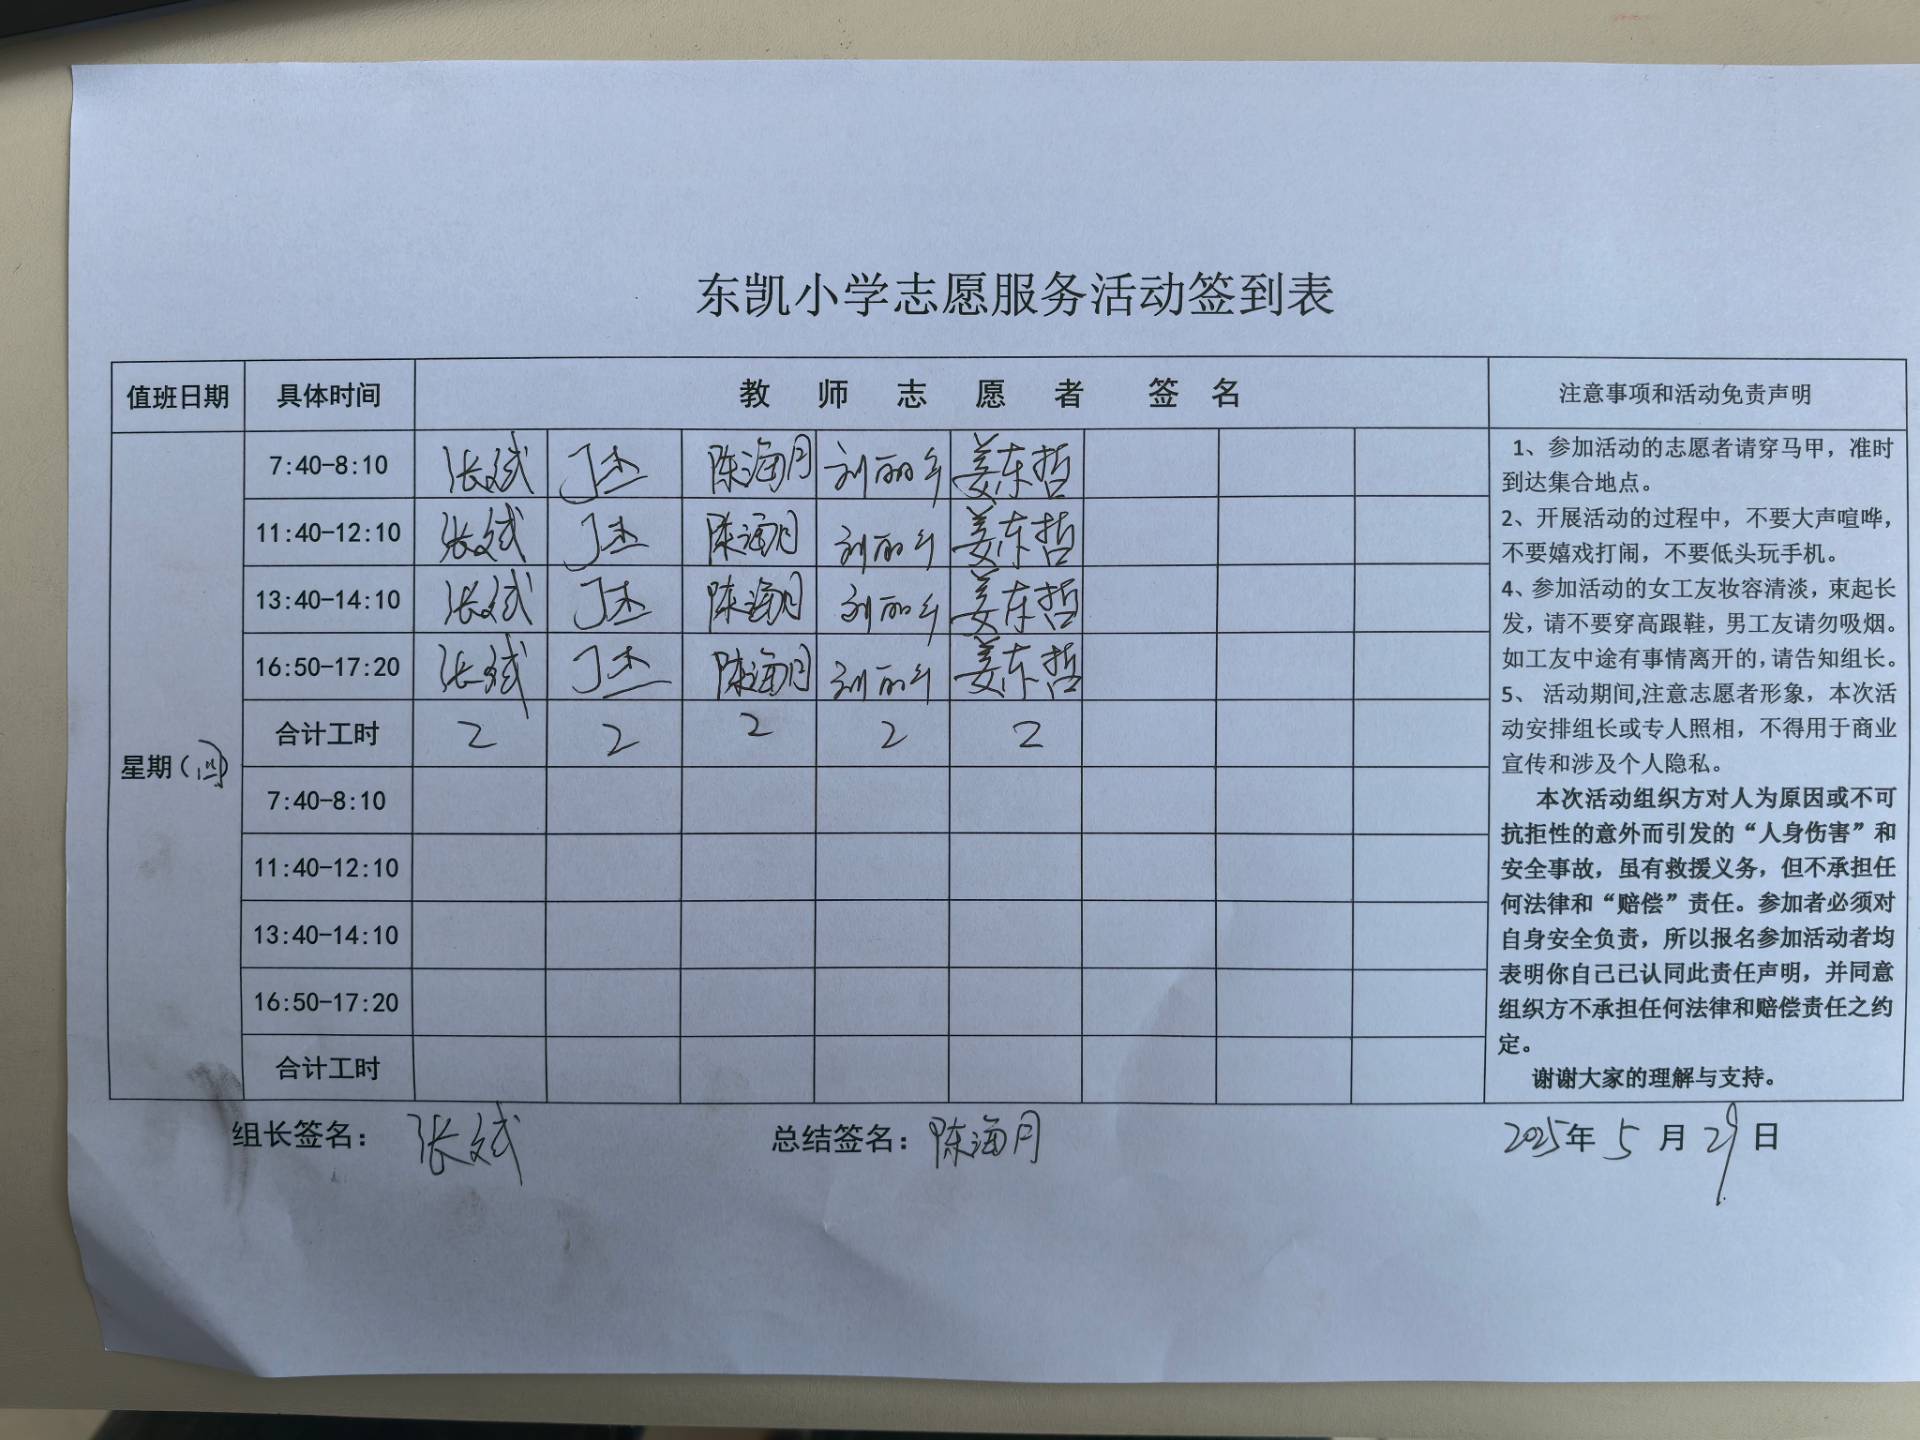 东凯小学志愿服务活动签到表
值班日期 具体时间 教师志愿者 签名 注意事项和活动免责声明
星期(四)
7:40-8:10 张斌 丁杰 陈海月 刘丽 姜东哲
11:40-12:10 张斌 丁杰 陈海月 刘丽 姜东哲
13:40-14:10 张斌 丁杰 陈海月 刘丽 姜东哲
16:50-17:20 张斌 丁杰 陈海月 刘丽 姜东哲
合计工时 2 2 2 2 2
7:40-8:10
11:40-12:10
13:40-14:10
16:50-17:20
合计工时
1、参加活动的志愿者请穿马甲，准时
到达集合地点。
2、开展活动的过程中，不要大声喧哗，
不要嬉戏打闹，不要低头玩手机。
4、参加活动的女工友妆容清淡，束起长
发，请不要穿高跟鞋，男工友请勿吸烟。
如工友中途有事情离开的，请告知组长。
5、 活动期间,注意志愿者形象，本次活
动安排组长或专人照相，不得用于商业
宣传和涉及个人隐私。
本次活动组织方对人为原因或不可
抗拒性的意外而引发的“人身伤害”和
安全事故，虽有救援义务，但不承担任
何法律和“赔偿”责任。参加者必须对
自身安全负责，所以报名参加活动者均
表明你自己已认同此责任声明，并同意
组织方不承担任何法律和赔偿责任之约
定。
谢谢大家的理解与支持。
组长签名： 张斌 总结签名：陈海月 2025年 5 月 29 日